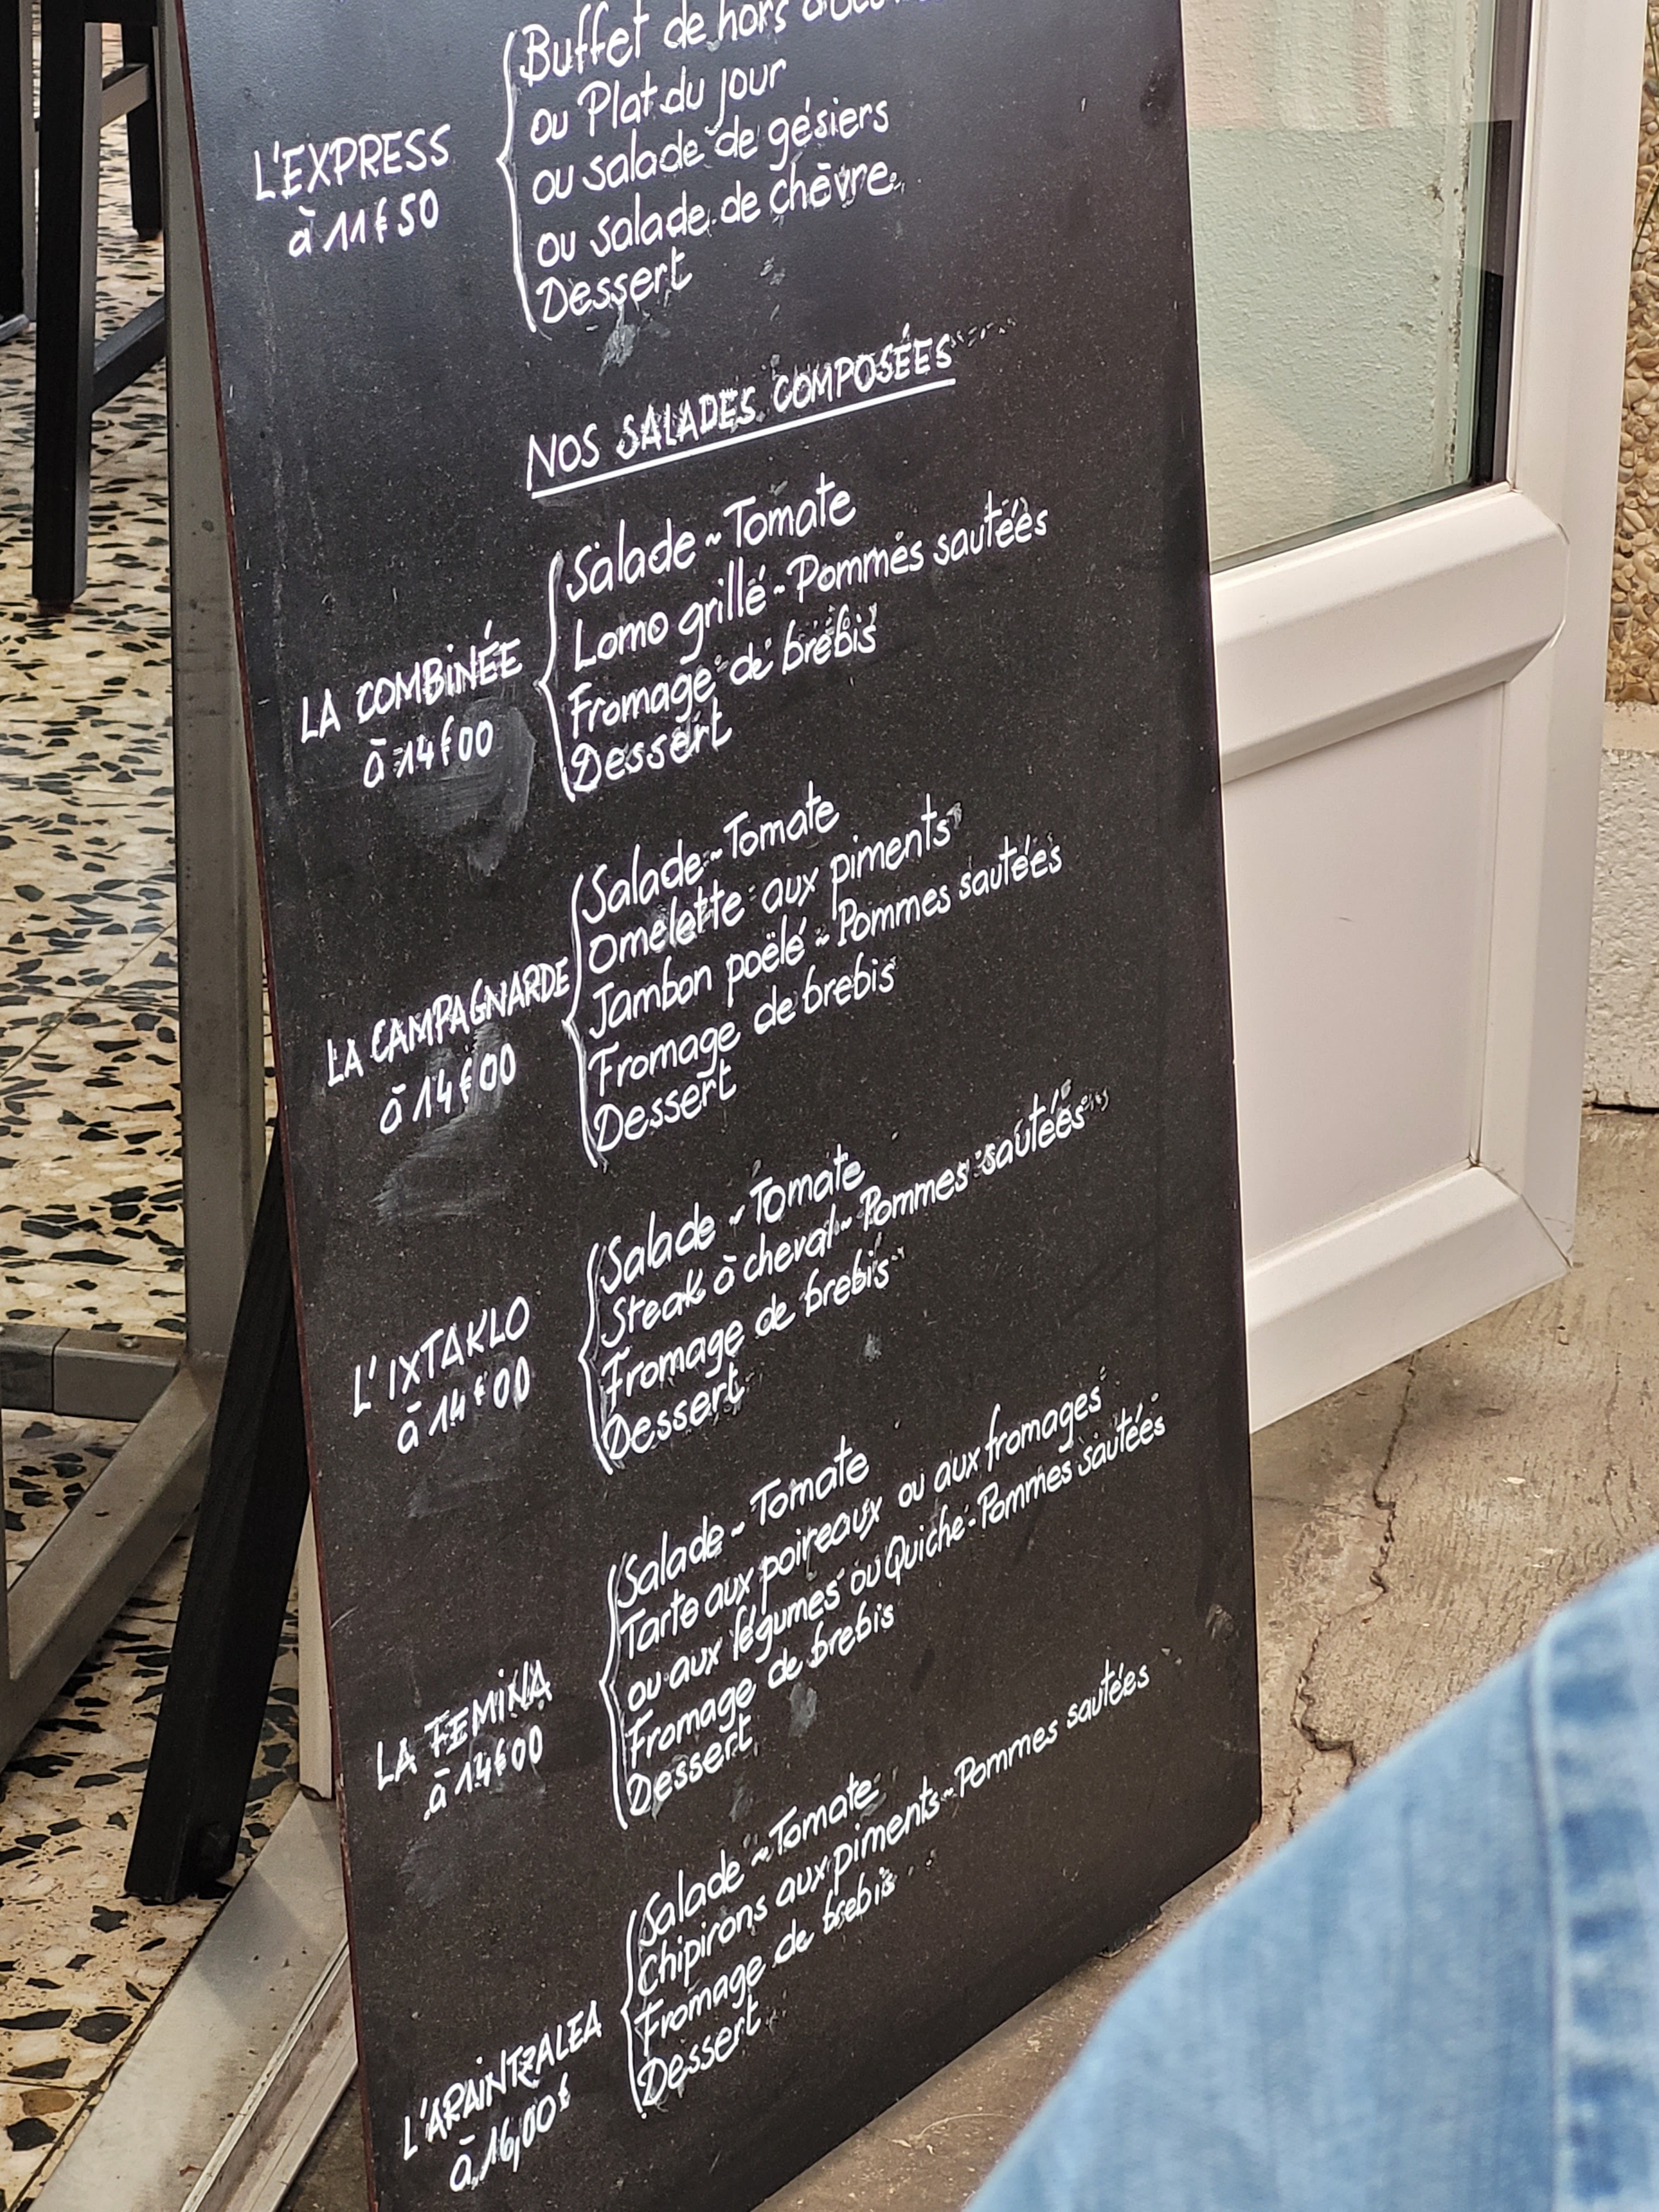 Buffet de hors
ou Plat du jour
ou salade de gésiers
ou salade de chèvre
Dessert
L'EXPRESS
à 11€50
NOS SALADES COMPOSÉES
Salade ~ Tomate
Lomo grillé ~ Pommes sautées
Fromage de brebis
Dessert
LA COMBINÉE
à 14€00
Salade ~ Tomate
Omelette aux piments
Jambon poëlé ~ Pommes sautées
Fromage de brebis
Dessert
LA CAMPAGNARDE
à 14€00
Salade ~ Tomate
Steak à cheval ~ Pommes sautées
Fromage de brebis
Dessert
L'IXTAKLO
à 14€00
Salade ~ Tomate
Tarte aux poireaux ou aux fromages
ou aux légumes ou Quiche - Pommes sautées
Fromage de brebis
Dessert
LA FEMINA
à 14€00
Salade ~ Tomate
Chipirons aux piments ~ Pommes sautées
Fromage de brebis
Dessert
L'ARAINTZALEA
à 16,00€